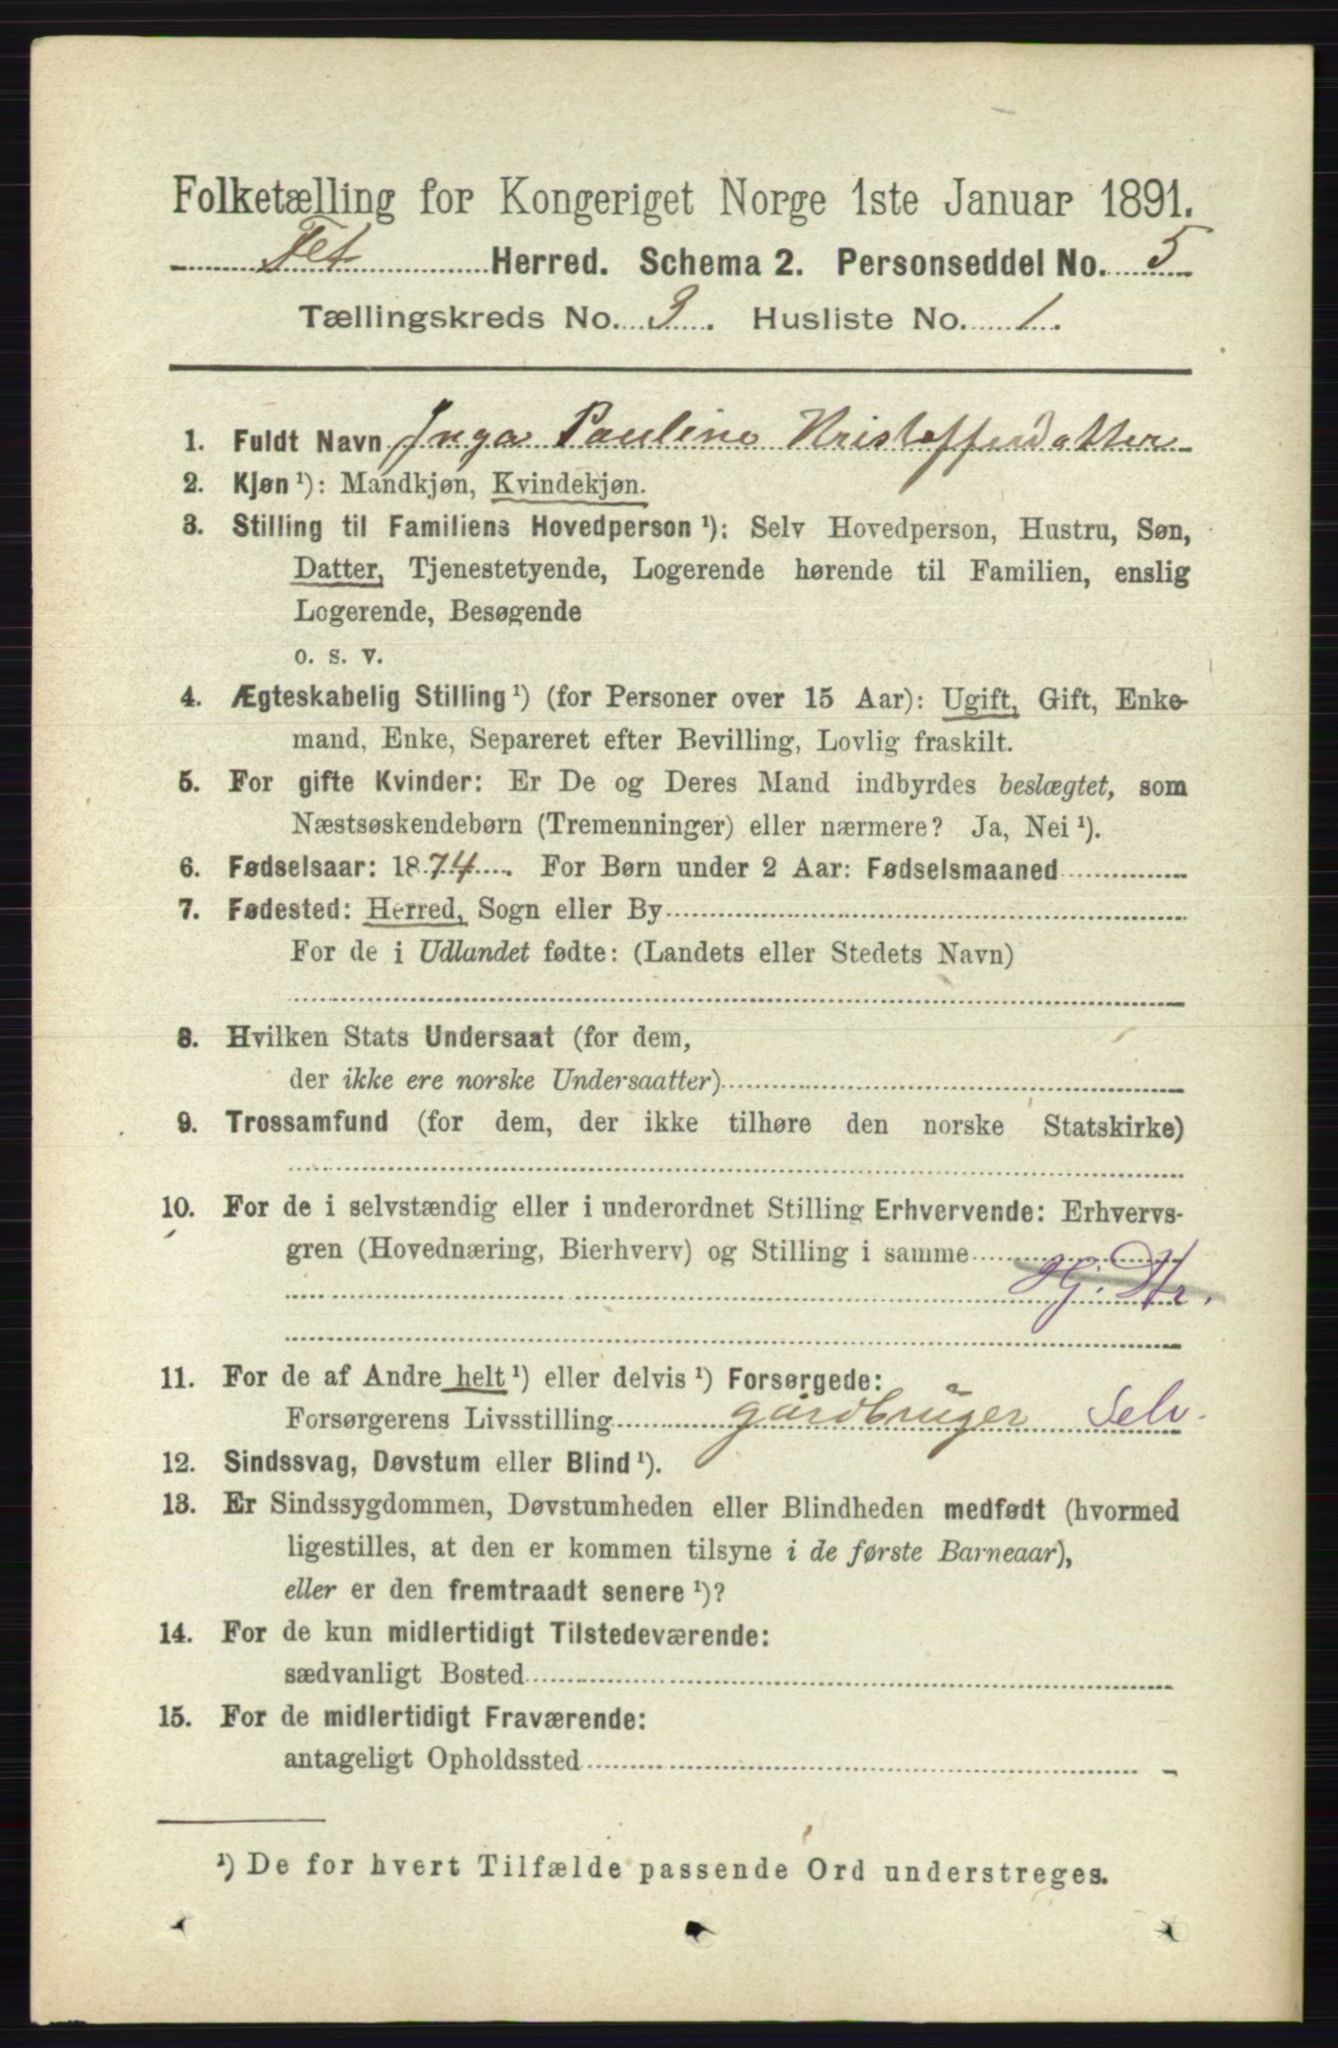 Folketælling for Kongeriget Norge 1ste Januar 1891.
Fet Herred. Schema 2. Personseddel No. 5
Tællingskreds No. 3. Husliste No. 1.
1. Fuldt Navn Inga Pauline Kristoffersdatter
2. Kjøn ¹): Mandkjøn, Kvindekjøn.
3. Stilling til Familiens Hovedperson ¹): Selv Hovedperson, Hustru, Søn,
Datter, Tjenestetyende, Logerende hørende til Familien, enslig
Logerende, Besøgende
o. s. v.
4. Ægteskabelig Stilling ¹) (for Personer over 15 Aar): Ugift, Gift, Enke-
mand, Enke, Separeret efter Bevilling, Lovlig fraskilt.
5. For gifte Kvinder: Er De og Deres Mand indbyrdes beslægtet, som
Næstsøskendebørn (Tremenninger) eller nærmere? Ja, Nei ¹).
6. Fødselsaar: 1874. For Børn under 2 Aar: Fødselsmaaned
7. Fødested: Herred, Sogn eller By
For de i Udlandet fødte: (Landets eller Stedets Navn)
8. Hvilken Stats Undersaat (for dem,
der ikke ere norske Undersaatter)
9. Trossamfund (for dem, der ikke tilhøre den norske Statskirke)
10. For de i selvstændig eller i underordnet Stilling Erhvervende: Erhvervs-
gren (Hovednæring, Bierhverv) og Stilling i samme
11. For de af Andre helt ¹) eller delvis ¹) Forsørgede:
Forsørgerens Livsstilling gårdbruger Selv.
12. Sindssvag, Døvstum eller Blind ¹).
13. Er Sindssygdommen, Døvstumheden eller Blindheden medfødt (hvormed
ligestilles, at den er kommen tilsyne i de første Barneaar),
eller er den fremtraadt senere ¹)?
14. For de kun midlertidigt Tilstedeværende:
sædvanligt Bosted
15. For de midlertidigt Fraværende:
antageligt Opholdssted
¹) De for hvert Tilfælde passende Ord understreges.